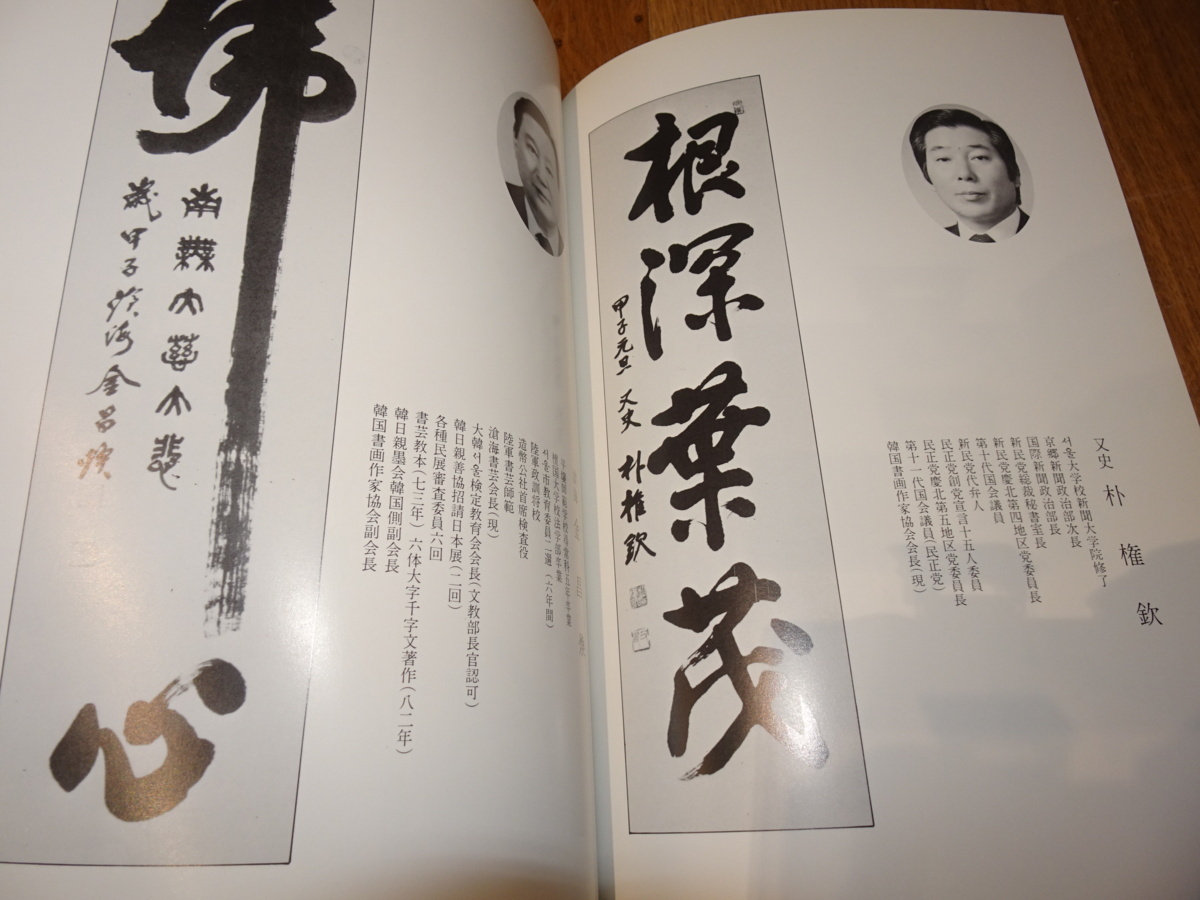 又史 朴權欽
서울大学校新聞大学院修了
京郷新聞政治部次長
国際新聞政治部長
新民党総裁秘書室長
新民党慶北第四地区党委員長
第十代国会議員
新民党代弁人
民正党創党宣言十五人委員
民正党慶北第五地区党委員長
第十一代国会議員(民正党)
韓国書画作家協会会長(現)
根深葉茂
甲子元旦 又史 朴権欽
서울市教育委員二選(六年間)
陸軍政訓将校
造幣公社首席検査役
陸軍書芸師範
滄海書芸会長(現)
大韓서울検定教育会会長(文教部長官認可)
韓日親善協招請日本展(二回)
各種民展審査委員六回
書芸教本(七三年)六体大字千字文著作(八二年)
韓日親墨会韓国側副会長
韓国書画作家協会副会長
佛心
南無大慈大悲
歳甲子 海金昌